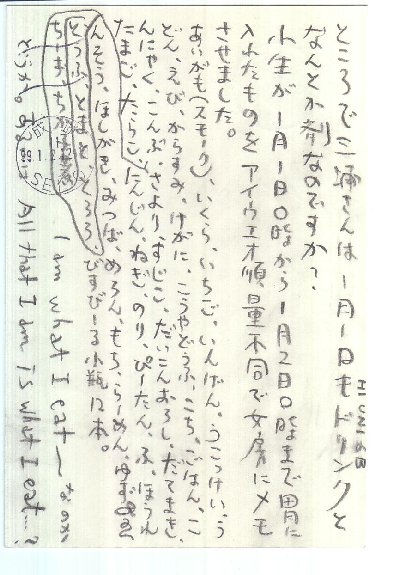 ところで三浦さんは1月1日もドリンクと
なんとか剤なのですか?
小生が1月1日0時から1月2日0時まで胃に
入れたものをアイウエオ順量不同で女房にメモ
させました。
あいがも(スモーク)、いくら、いちご、いんげん、うこっけい、う
どん、えび、からすみ、けがに、こうやどうふ、こち、ごはん、こ
んにゃく、こんぶ、さより、すじこ、だいこんおろし、だてまき、
たまご、たらこ、にんじん、ねぎ、のり、ぴーたん、ふ、ほうれ
んそう、ほしがき、みつば、めろん、もち、らーめん、ゆず
とうふ、とまと、とろろ、 びーる小瓶12本。
ちまき
I am what I eat
All that I am is what I eat...?
成
99.1.2
SE